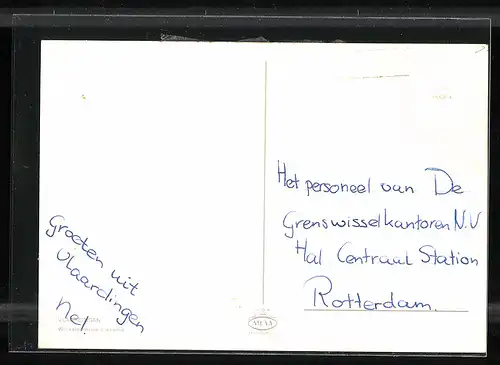 Groeten uit
Vlaardingen
Nel
Het personeel van De
Grenswisselkantoren N.V
Hal Centraal Station
Rotterdam.